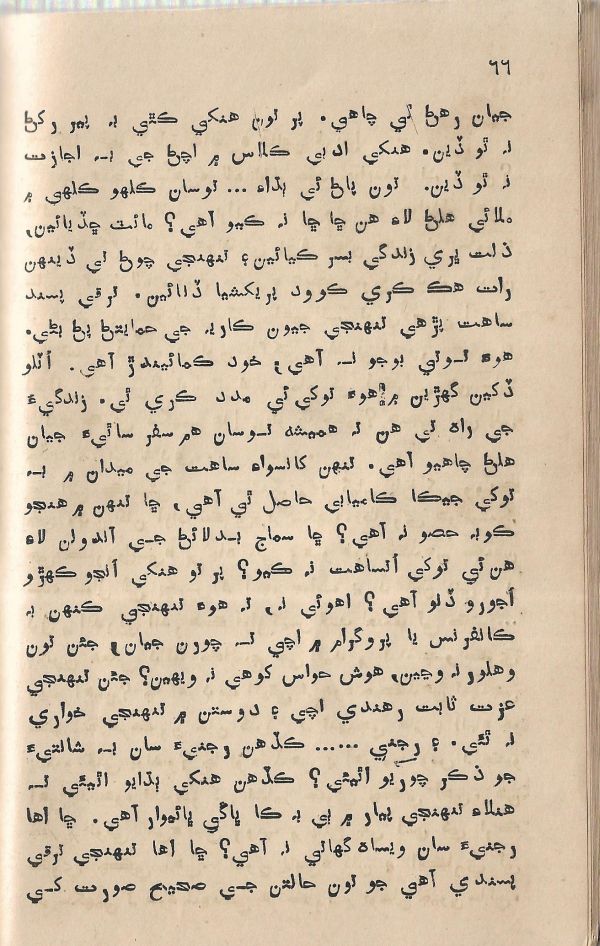 ٦٦
جيان رهڻ ٿي چاهي. پر تون هنکي ڪٿي به پير رکڻ
نه ٿو ڏين. هنکي ادبي ڪلاس ۾ اچڻ جي به اجازت
نه ٿو ڏين. تون پاڻ ئي ٻڌاءِ ... توسان ڪلهو ڪلهي ۾
ملائي هلڻ لاءِ هن ڇا ڇا نه ڪيو آهي؟ مائٽ ڇڏيائين،
ذلت ڀري زندگي بسر ڪيائين ۽ تنهنجي چوڻ تي ڏينهن
رات هڪ ڪري ڪووڊ پريڪشيا ڏنائين. ترقي پسند
ساهت پڙهي تنهنجي جيون ڪاريه جي حمايتڻ پڻ بڻي.
هوءَ توتي ٻوجو نه آهي، خود ڪمائيندڙ آهي. اُٽلو
ڏکين گهڙين ۾ هوءَ توکي ئي مدد ڪري ٿي. زندگيءَ
جي راه تي هن ته هميشه توسان هم سفر ساٿيءَ جيان
هلڻ چاهيو آهي. تنهن کانسواءِ ساهت جي ميدان ۾ به
توکي جيڪا ڪاميابي حاصل ٿي آهي، ڇا تنهن ۾ هنجو
ڪوبه حصو نه آهي؟ ڇا سماج بدلائڻ جي آندولن لاءِ
هن ئي توکي اُتساهت نه ڪيو؟ پر تو هنکي اُنجو ڪهڙو
اُجورو ڏنو آهي؟ اهوئي نه، ته هوءَ تنهنجي ڪنهن به
ڪانفرنس يا پروگرام ۾ اچي ته چورن جيان، جئن تون
وهلور نه وڃين، هوش حواس کوهي نه ويهين؟ جئن تنهنجي
عزت ثابت رهندي اچي ۽ دوستن ۾ تنهنجي خواري
نه ٿئي. ۽ رجني ...... ڪڏهن رجنيءَ سان به شانتيءَ
جو ذڪر چوريو اٿيئي؟ ڪڏهن هنکي ٻڌايو اٿيئي ته
هنلاءِ تنهنجي پيار ۾ ٻي به ڪا ڀاڱي ڀائيوار آهي. ڇا اها
رجنيءَ سان ويساه گهاتي نه آهي؟ ڇا اها تنهنجي ترقي
پسندي آهي جو تون حالتن جي صحيح صورت کي